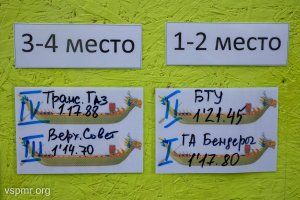 3-4 место
1-2 место
IV Транс. Газ
1.17.88
III Верх. Совет
1'14.70
II БТУ
1'21.45
I ГА Бендеры
1'17.80
vspmr.org